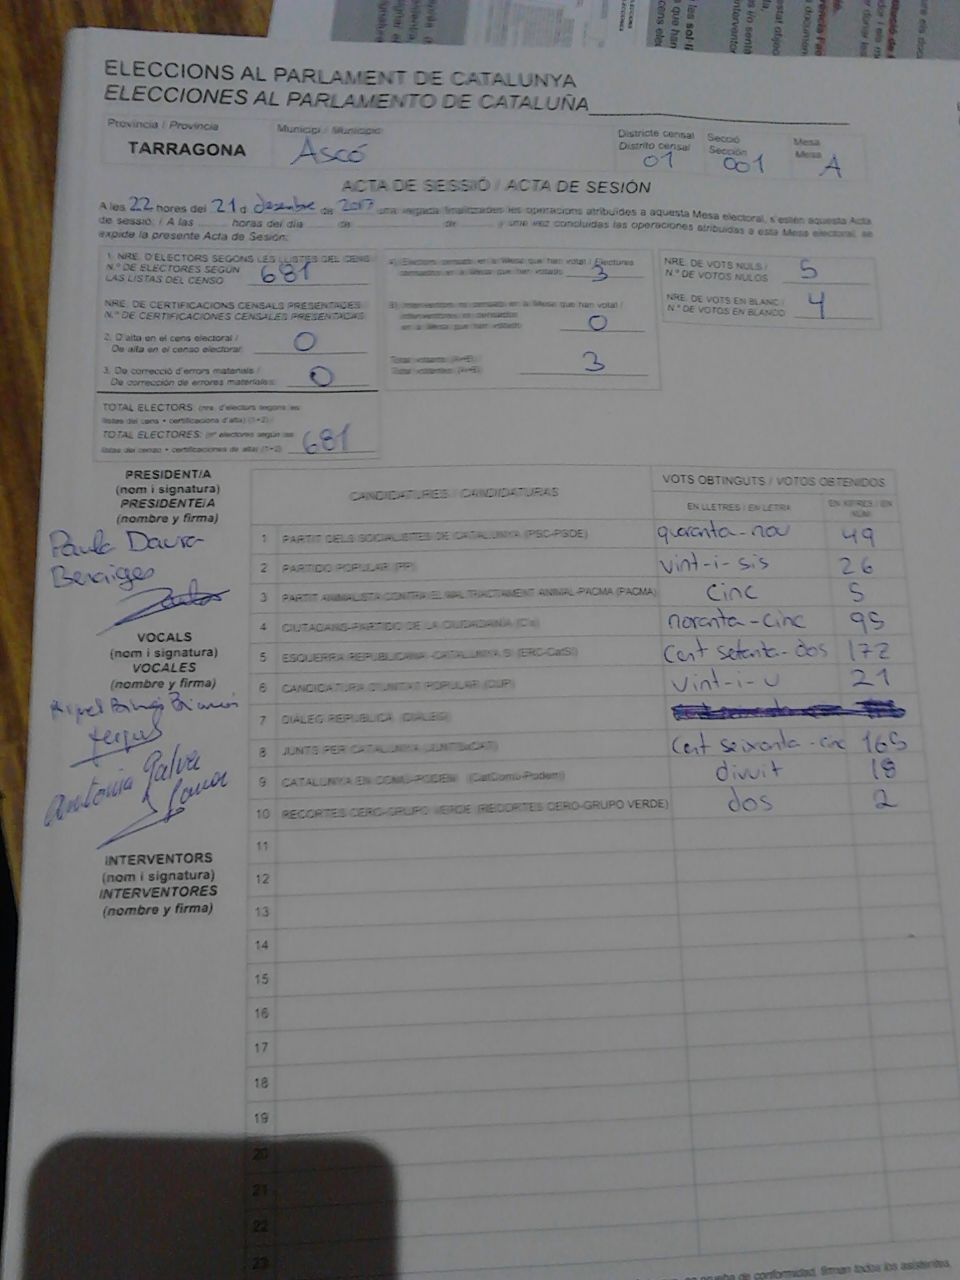 ELECCIONS AL PARLAMENT DE CATALUNYA
ELECCIONES AL PARLAMENTO DE CATALUÑA
Província / Provincia
TARRAGONA
Municipi / Municipio
Ascó
Districte censal
Distrito censal
01
Secció
Sección
001
Mesa
Mesa
A
ACTA DE SESSIÓ / ACTA DE SESIÓN
A les 22 hores del 21 d desembre de 2017 una vegada finalitzades les operacions atribuïdes a aquesta Mesa electoral, s'estén aquesta Acta
de sessió. / A las horas del día de de y una vez concluidas las operaciones atribuidas a esta Mesa electoral, se
expide la presente Acta de Sesión.
1. NRE. D'ELECTORS SEGONS LES LLISTES DEL CENS
N.º DE ELECTORES SEGÚN
LAS LISTAS DEL CENSO 681
NRE. DE CERTIFICACIONS CENSALS PRESENTADES
N.º DE CERTIFICACIONES CENSALES PRESENTADAS
2. D'alta en el cens electoral /
De alta en el censo electoral: 0
3. De correcció d'errors materials /
De corrección de errores materiales: 0
TOTAL ELECTORS: (nre. d'electors segons les
llistes del cens + certificacions d'alta) (1+2) /
TOTAL ELECTORES: (nº electores según las
listas del censo + certificaciones de alta) (1+2) 681
censados en la Mesa que han votado 3
en la Mesa que han votado 0
Total votants (A+B) /
Total votantes (A+B) 3
NRE. DE VOTS NULS /
N.º DE VOTOS NULOS 5
NRE. DE VOTS EN BLANC /
N.º DE VOTOS EN BLANCO 4
PRESIDENT/A
(nom i signatura)
PRESIDENTE/A
(nombre y firma)
Paula Daura
VOCALS
(nom i signatura)
VOCALES
(nombre y firma)
Antonia
INTERVENTORS
(nom i signatura)
INTERVENTORES
(nombre y firma)
CANDIDATURES / CANDIDATURAS
VOTS OBTINGUTS / VOTOS OBTENIDOS
EN LLETRES / EN LETRA
EN XIFRES / EN NÚM.
1 PARTIT DELS SOCIALISTES DE CATALUNYA (PSC-PSOE) quaranta-nou 49
2 PARTIDO POPULAR (PP) vint-i-sis 26
3 PARTIT ANIMALISTA CONTRA EL MALTRACTAMENT ANIMAL-PACMA (PACMA) cinc 5
4 CIUTADANS-PARTIDO DE LA CIUDADANÍA (C's) noranta-cinc 95
5 ESQUERRA REPUBLICANA-CATALUNYA SÍ (ERC-CatSí) cent setanta-dos 172
6 CANDIDATURA D'UNITAT POPULAR (CUP) vint-i-u 21
7 DIÀLEG REPÚBLICA (DIÀLEG)
8 JUNTS PER CATALUNYA (JUNTSxCAT) cent seixanta-cinc 165
9 CATALUNYA EN COMÚ-PODEM (CatComú-Podem) divuit 18
10 RECORTES CERO-GRUPO VERDE (RECORTES CERO-GRUPO VERDE) dos 2
11
12
13
14
15
16
17
18
19
20
21
22
23